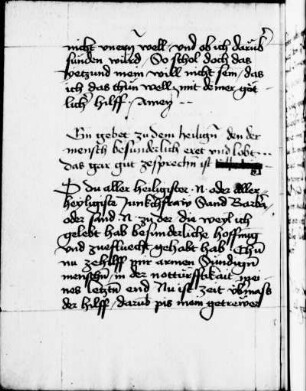 nicht unern well und ob ich darub
sunden wurd / So schol doch das
yetzund mein will nicht sein / das
ich das thun well mit deiner göt
lich hilff / Amen / -
Ein gebet zu dem heilign den der
mensch besunderlich eret und lobt
das gar gut zesprechn ist
O Du aller heiligister · N · oder aller
heyligiste Junckhfraw Sand Barba
oder sand · N · zu der die weyl ich
gelebt hab besunderliche hoffnug
und zuefluecht gehabt hab / Thu
nu zehilff mir armen Sundign
menschn in der notturfftikait mei
nes letztn end Nu ist zeit
der hilff / darub pis mein getrewer